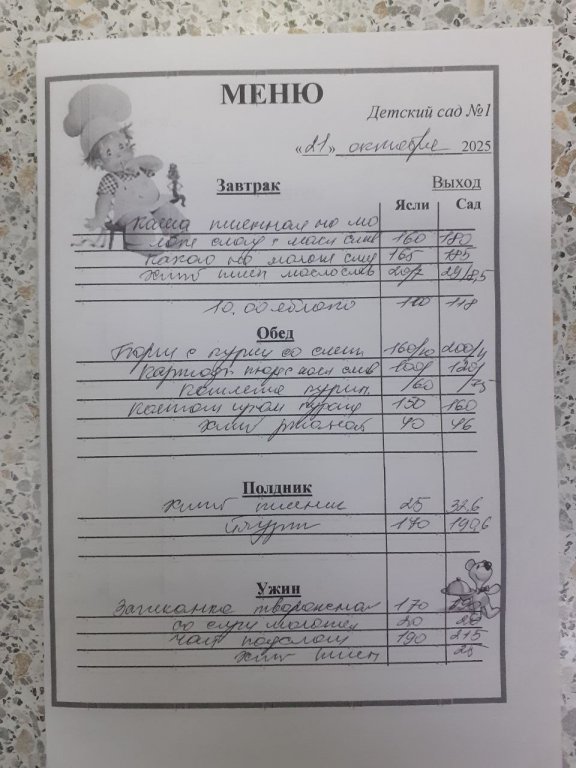 МЕНЮ
Детский сад №1
«21» октября 2025
Завтрак Выход
Ясли Сад
Каша пшенная на мо
локе слад с масл слив 160 180
Какао на молоке слад 165 185
Хлеб пшен масло слив 20/7 29/8,5
10.00 яблоко 110 118
Обед
Борщ с курицы со смет 160/10 200/11
Картоф пюре с масл слив 100/ 120/
Котлета куриц /60 /75
150 160
Хлеб ржаной 40 46
Полдник
Хлеб пшенич 25 32,6
Йогурт 170 190,6
Ужин
Запеканка творожная 170
со сгущ молоком 20
Чай подслащ 190 215
Хлеб пшен 25